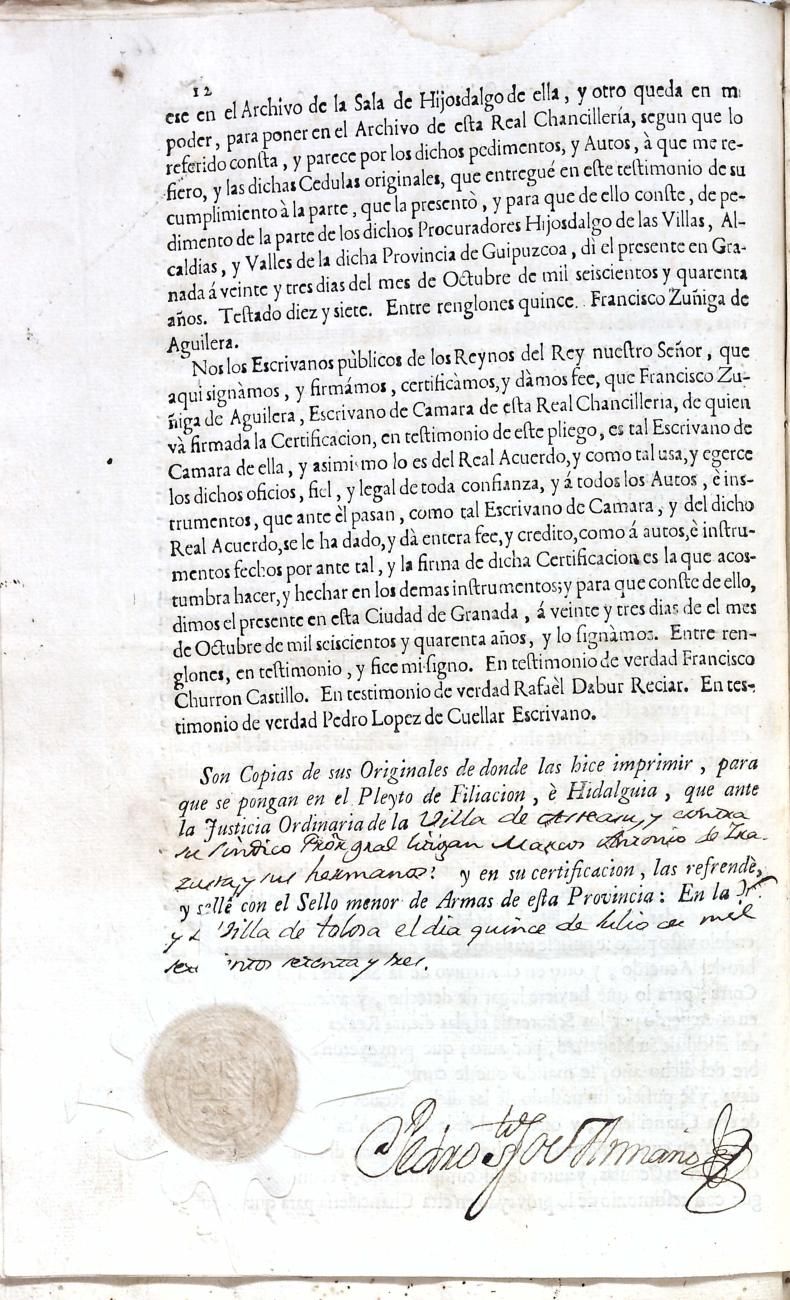 12
ese en el Archivo de la Sala de Hijosdalgo de ella, y otro queda en mi
poder, para poner en el Archivo de esta Real Chancillería, segun que lo
referido consta, y parece por los dichos pedimentos, y Autos, à que me re-
fiero, y las dichas Cedulas originales, que entregué en este testimonio de su
cumplimiento à la parte, que la presentò, y para que de ello conste, de pe-
dimento de la parte de los dichos Procuradores Hijosdalgo de las Villas, Al-
caldias, y Valles de la dicha Provincia de Guipuzcoa, dì el presente en Gra-
nada á veinte y tres dias del mes de Octubre de mil seiscientos y quarenta
años. Testado diez y siete. Entre renglones quince. Francisco Zuñiga de
Aguilera.
Nos los Escrivanos pùblicos de los Reynos del Rey nuestro Señor, que
aqui signàmos, y firmámos, certificàmos, y dàmos fee, que Francisco Zu-
ñiga de Aguilera, Escrivano de Camara de esta Real Chancilleria, de quien
và firmada la Certificacion, en testimonio de este pliego, es tal Escrivano de
Camara de ella, y asimismo lo es del Real Acuerdo, y como tal usa, y egerce
los dichos oficios, fiel, y legal de toda confianza, y á todos los Autos, è ins-
trumentos, que ante èl pasan, como tal Escrivano de Camàra, y del dicho
Real Acuerdo, se le ha dado, y dà entera fee, y credito, como á autos, è instru-
mentos fechos por ante tal, y la firma de dicha Certificacion es la que acos-
tumbra hacer, y hechar en los demas instrumentos; y para que conste de ello,
dimos el presente en esta Ciudad de Granada, á veinte y tres dias de el mes
de Octubre de mil seiscientos y quarenta años, y lo signàmos. Entre ren-
glones, en testimonio, y fice mi signo. En testimonio de verdad Francisco
Churron Castillo. En testimonio de verdad Rafaèl Dabur Reciar. En tes-
timonio de verdad Pedro Lopez de Cuellar Escrivano.
Son Copias de sus Originales de donde las hice imprimir, para
que se pongan en el Pleyto de Filiacion, è Hidalguia, que ante
la Justicia Ordinaria de la Villa de y contra
su Sindico Pròr gral litigan Marcos Antonio de Yra-
zusta, y sus hermanos: y en su certificacion, las refrendè,
y sellè con el Sello menor de Armas de esta Provincia: En la
Villa de tolosa el dia quince de Julio de mil
setenta y tres.
Pedro